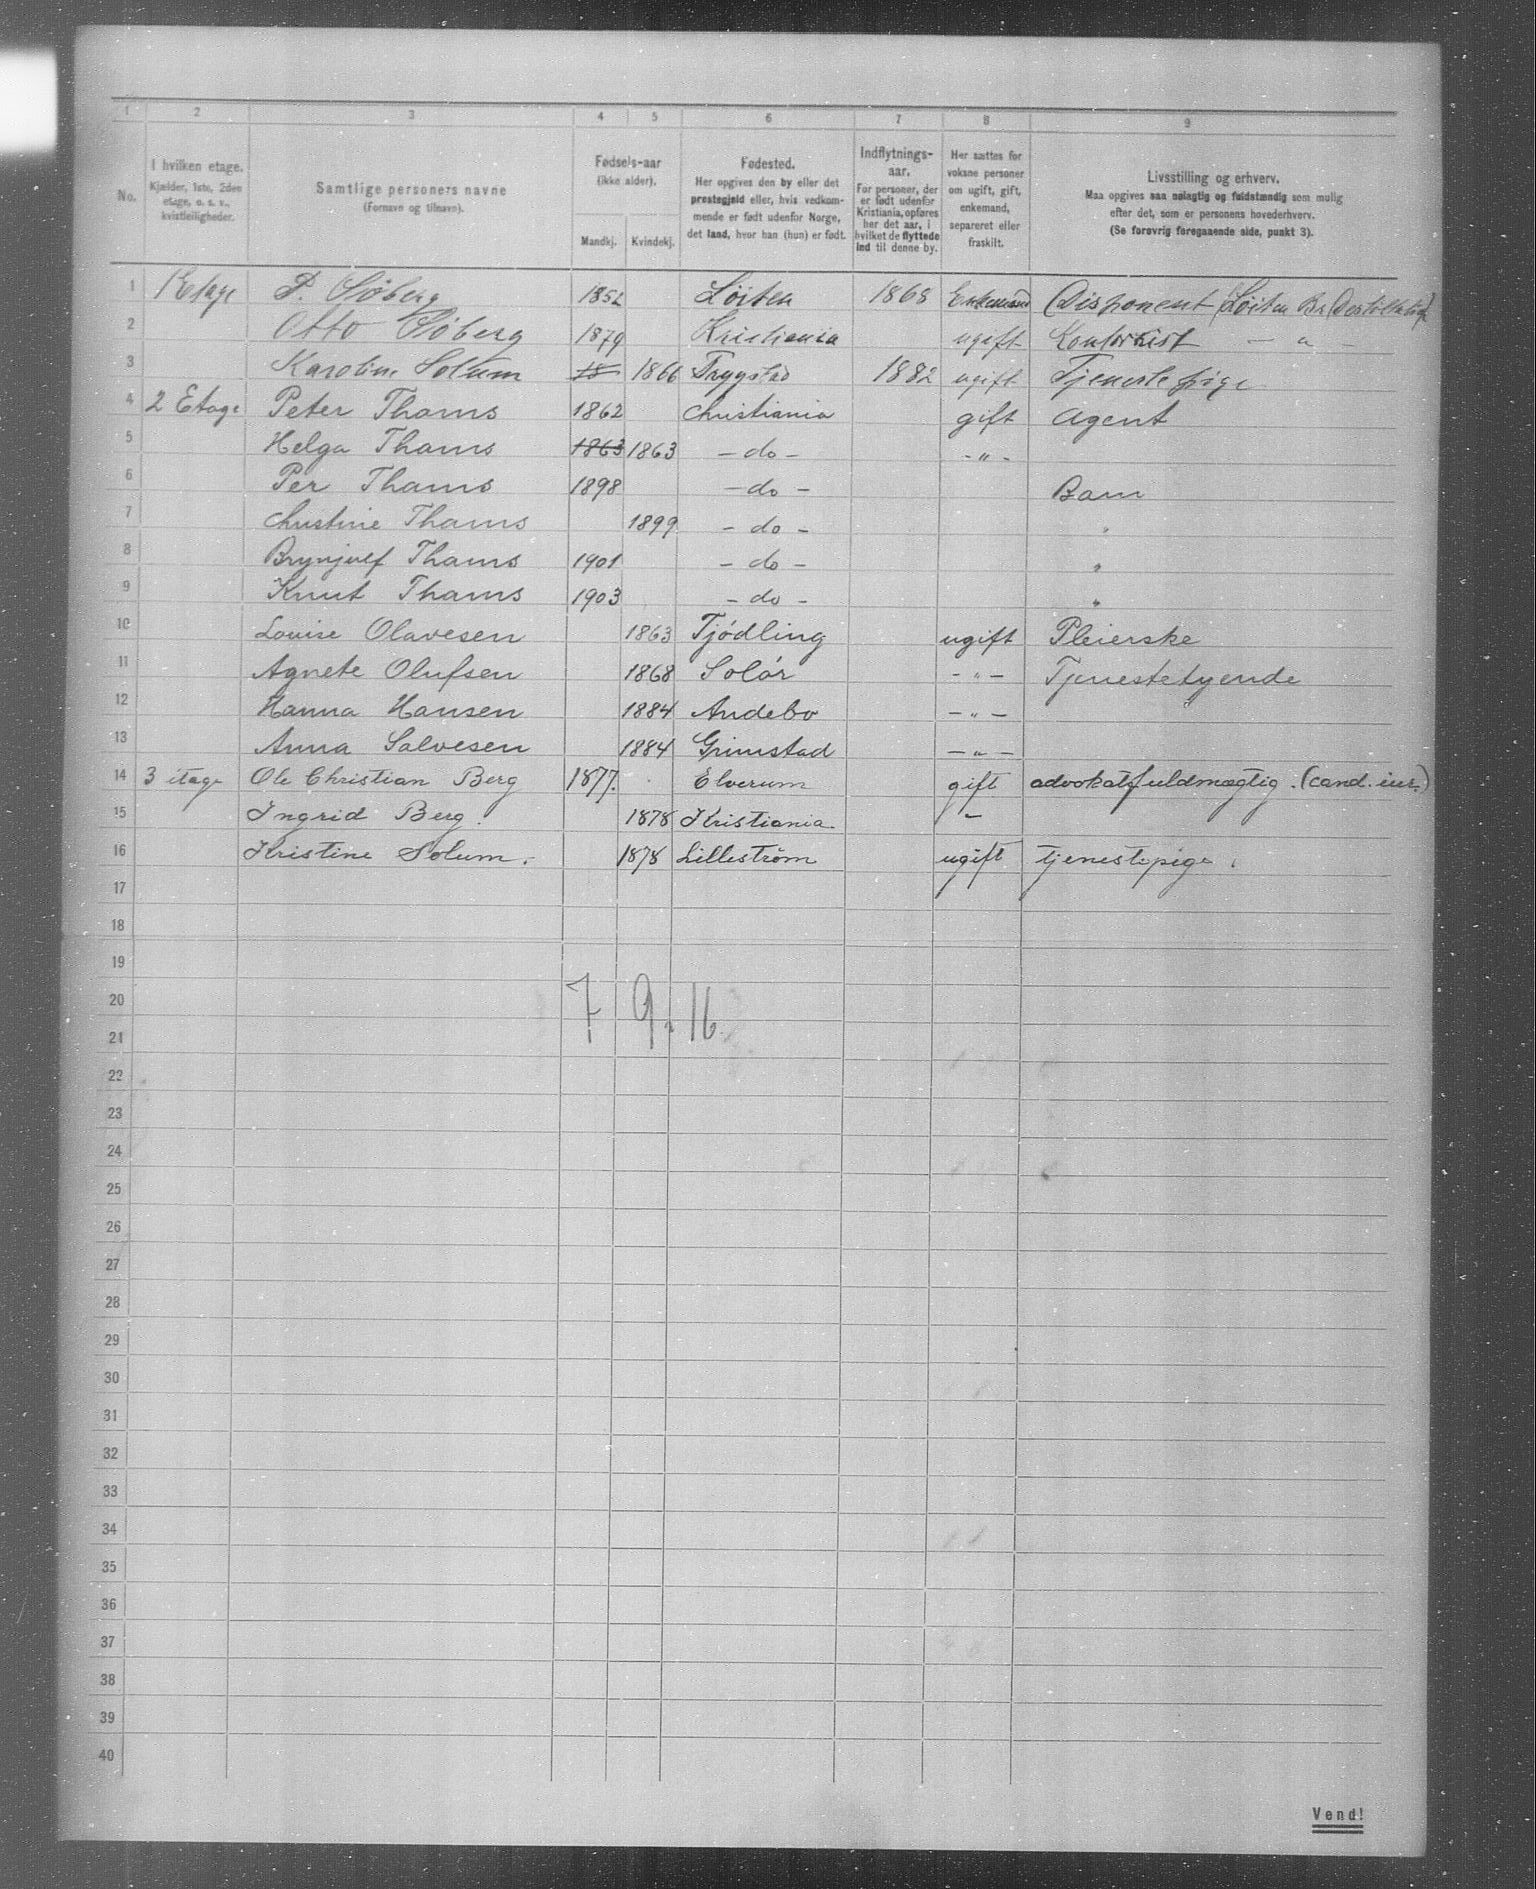 1 2 3 4 5 6 7 8 9
No.
I hvilken etage.
Kjælder, 1ste, 2den
etage, o. s. v.,
kvistleiligheder.
Samtlige personers navne
(Fornavn og tilnavn).
Fødsels-aar
(ikke alder).
Mandkj. Kvindekj.
Fødested.
Her opgives den by eller det
prestegjeld eller, hvis vedkom-
mende er født udenfor Norge,
det land, hvor han (hun) er født.
Indflytnings-
aar.
For personer, der
er født udenfor
Kristiania, opføres
her det aar, i
hvilket de flyttede
ind til denne by.
Her sættes for
voksne personer
om ugift, gift,
enkemand,
separeret eller
fraskilt.
Livsstilling og erhverv.
Maa opgives saa nøiagtig og fuldstændig som mulig
efter det, som er personens hovederhverv.
(Se forøvrig foregaaende side, punkt 3).
1 1 Etage P. Söberg 1852 Löiten 1868 Enkemand Disponent (Löiten Br.
2 Otto Söberg 1879 Kristiania ugift Kontorist — " —
3 Karoline Solum 18 1866 Trygstad 1882 ugift Tjenestepige
4 2 Etage Peter Thams 1862 Christiania gift Agent
5 Helga Thams 1863 1863 – do – – " –
6 Per Thams 1898 – do – Barn
7 Christine Thams 1899 – do – "
8 Brynjulf Thams 1901 – do – "
9 Knut Thams 1903 – do – "
10 Louise Olavesen 1863 Tjödling ugift Pleierske
11 Agnete Olufsen 1868 Solör – " – Tjenestetyende
12 Hanna Hansen 1884 Andebo – " –
13 Anna Salvesen 1884 Grimstad – " –
14 3 etage Ole Christian Berg 1877. Elverum gift advokatfuldmægtig. (cand. iur.)
15 Ingrid Berg. 1878 Kristiania. "
16 Kristine Solum. 1878 Lilleström ugift tjenestepige.
17
18
19
20 7 9. 16
21
22
23
24
25
26
27
28
29
30
31
32
33
34
35
36
37
38
39
40
Vend!